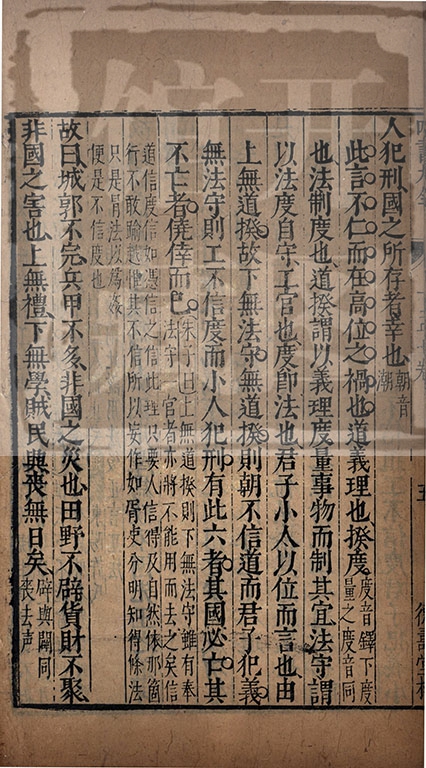 人犯刑國之所存者幸也朝音潮
此言不仁而在高位之禍也道義理也揆度度音鐸下度量之度音同
也法制度也道揆謂以義理度量事物而制其宜法守謂
以法度自守工官也度即法也君子小人以位而言也由
上無道揆故下無法守無道揆則朝不信道而君子犯義
無法守則工不信度而小人犯刑有此六者其國必亡其
不亡者僥倖而已朱子曰上無道揆則下無法守雖有奉
法守一官者亦將不能用而去之矣信
道信度信如憑信之信此理只要人信得及自然依那箇
行不敢踰越惟其不信所以妄作如胥吏分明知得條法
只是冐法以爲姦
便是不信度也
故曰城郭不完兵甲不多非國之災也田野不辟貨財不聚
非國之害也上無禮下無學賊民興喪無日矣辟與闢同
喪去声